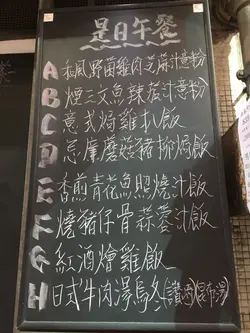 是日午餐
A 和風野菌雞肉芝麻汁意粉
B 煙三文魚辣茄汁意粉
C 意式焗雞扒飯
D 忌廉蘑菇豬排焗飯
E 香煎青花魚照燒汁飯
F 燒豬仔骨蒜蓉汁飯
G 紅酒燴雞飯
H 日式牛肉湯烏冬